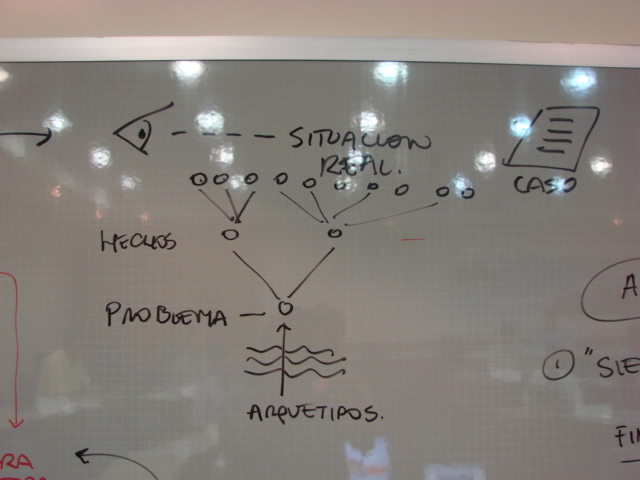 SITUACION
REAL.
CASO
HECHOS
PROBLEMA
ARQUETIPOS.
A
① "SIE
FIN
RA